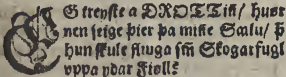 EG treyste a DROTTin/ huor
nen seige þier þa minne Salu/ Þ
hun skule fliuga sm Skogarfugl
vppa ydar Fiøll?